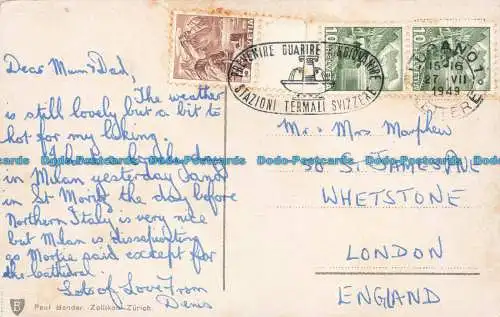 Dear Mum & Dad,
The weather
is still lovely but a bit to
hot for my liking.
I have been
in Milan yesterday and
in St Moritz the day before
Northern Italy is very nice
but Milan is dissapointing
as Mortie said except for
the cathedral.
Lots of Love from
Denis
Paul Bender, Zollikon-Zürich.
PREVENIRE GUARIRE
STAZIONI TERMALI SVIZZERE
HELVETIA
10
10
LUGANO 1
15-16
27. VII
1949
LETTERE
Mr & Mrs Marphew
ST JAMES AVE
WHETSTONE
LONDON
ENGLAND
Dodo-Postcards.com